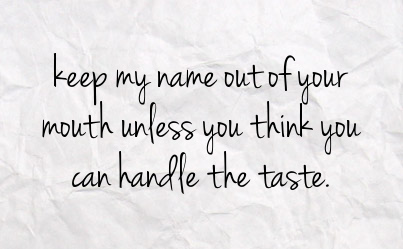 keep my name out of your
mouth unless you think you
can handle the taste.